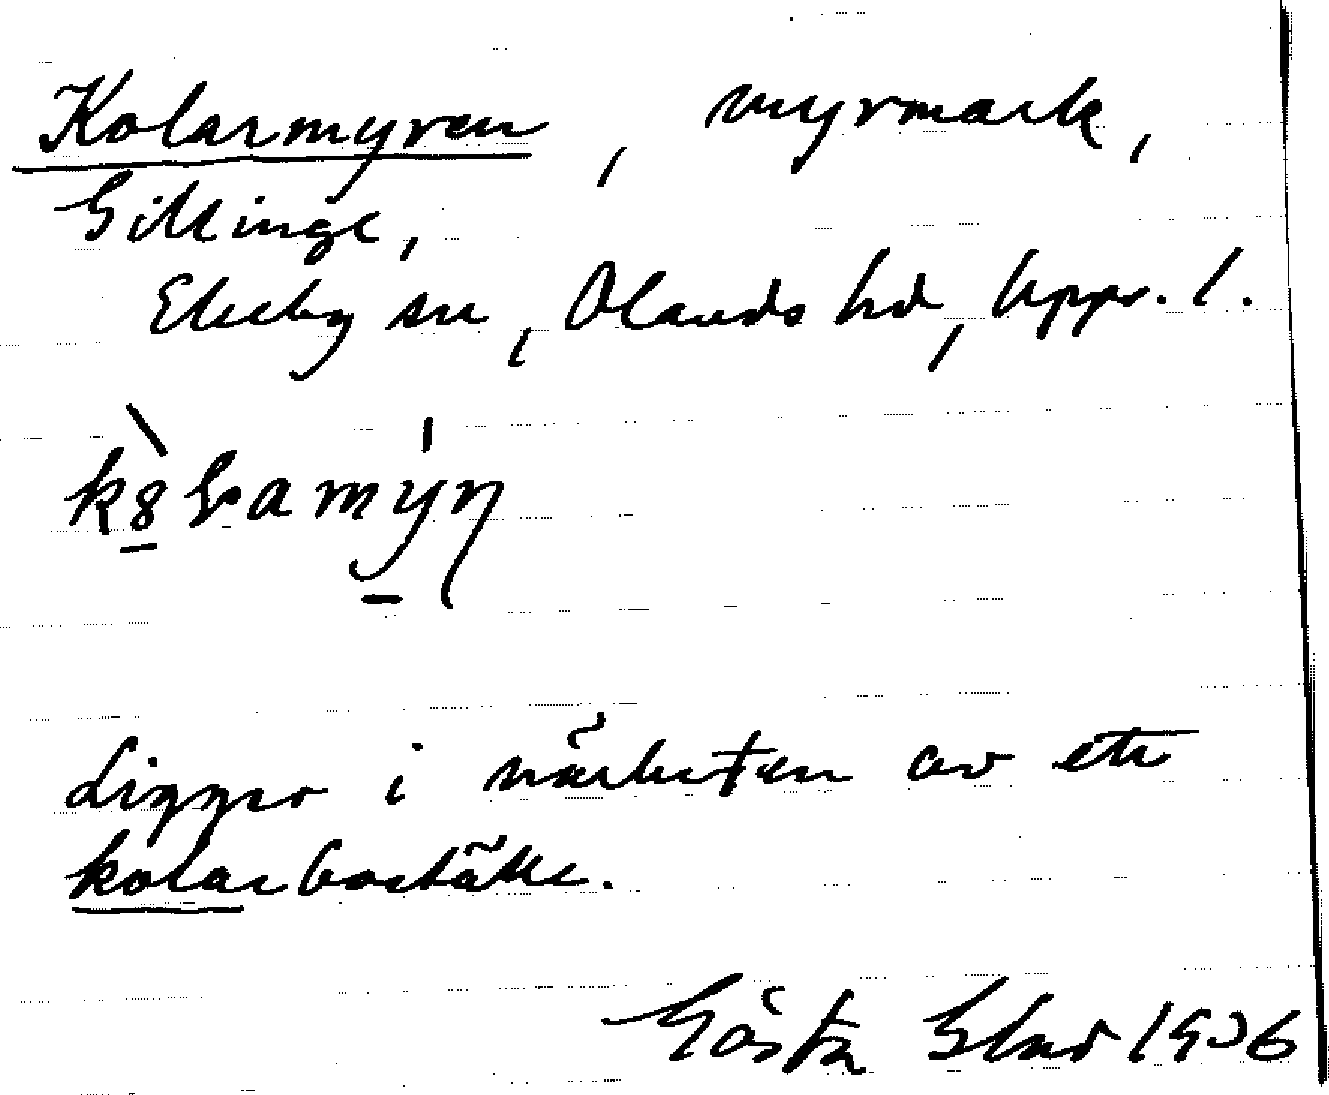 Kolarmyren, myrmark,
Gillinge,
Ekeby sn, Olands hd, Uppr. l.
Ligger i närheten av ett
kolarboställe.
Gösta 1936